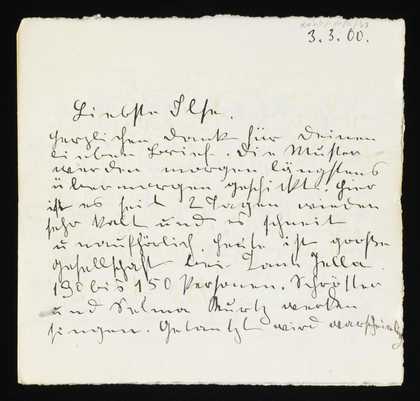 3.3.00.
Liebste Ilse.
Herzlichen Dank für Deinen
lieben Brief. Die Muster
werden morgen längstens
übermorgen geschickt. Hier
ist es seit 2 Tagen wieder
sehr kalt und es schneit
unaufhörlich. Heute ist große
Gesellschaft bei Tante Jella.
bis 150 Personen. Schrötter
und Selma Kurtz werden
singen. Getantzt wird warscheinlich